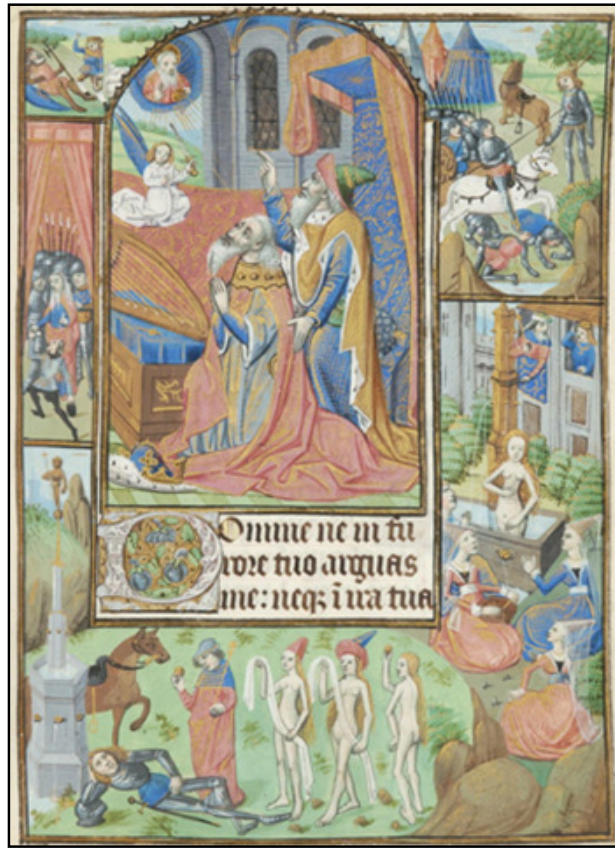 Domine ne in fu
rore tuo arguas
me: neqz i ira tua